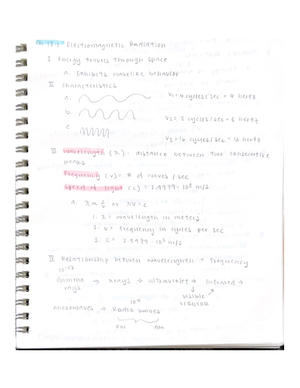 Electromagnetic Radiation
I. Energy travels through space
a. Exhibits wavelike behavior
II. Characteristics
a. v₁= 4 cycles/sec = 4 hertz
b. v₂= 8 cycles/sec = 8 hertz
c. v₃= 16 cycles/sec = 16 hertz
III. wavelength (λ): distance between two consecutive
peaks
Frequency (v)= # of waves / sec
Speed of light (c) = 2.9979· 10⁸ m/s
a. or λv=c
1. λ = wavelength in meters
2. v = frequency in cycles per sec
3. c = 2.9979· 10⁸ m/s
IV. Relationship between wavelength + frequency
gamma → xrays → ultraviolet → infrared →
rays visible
microwaves → Radio waves
FM AM